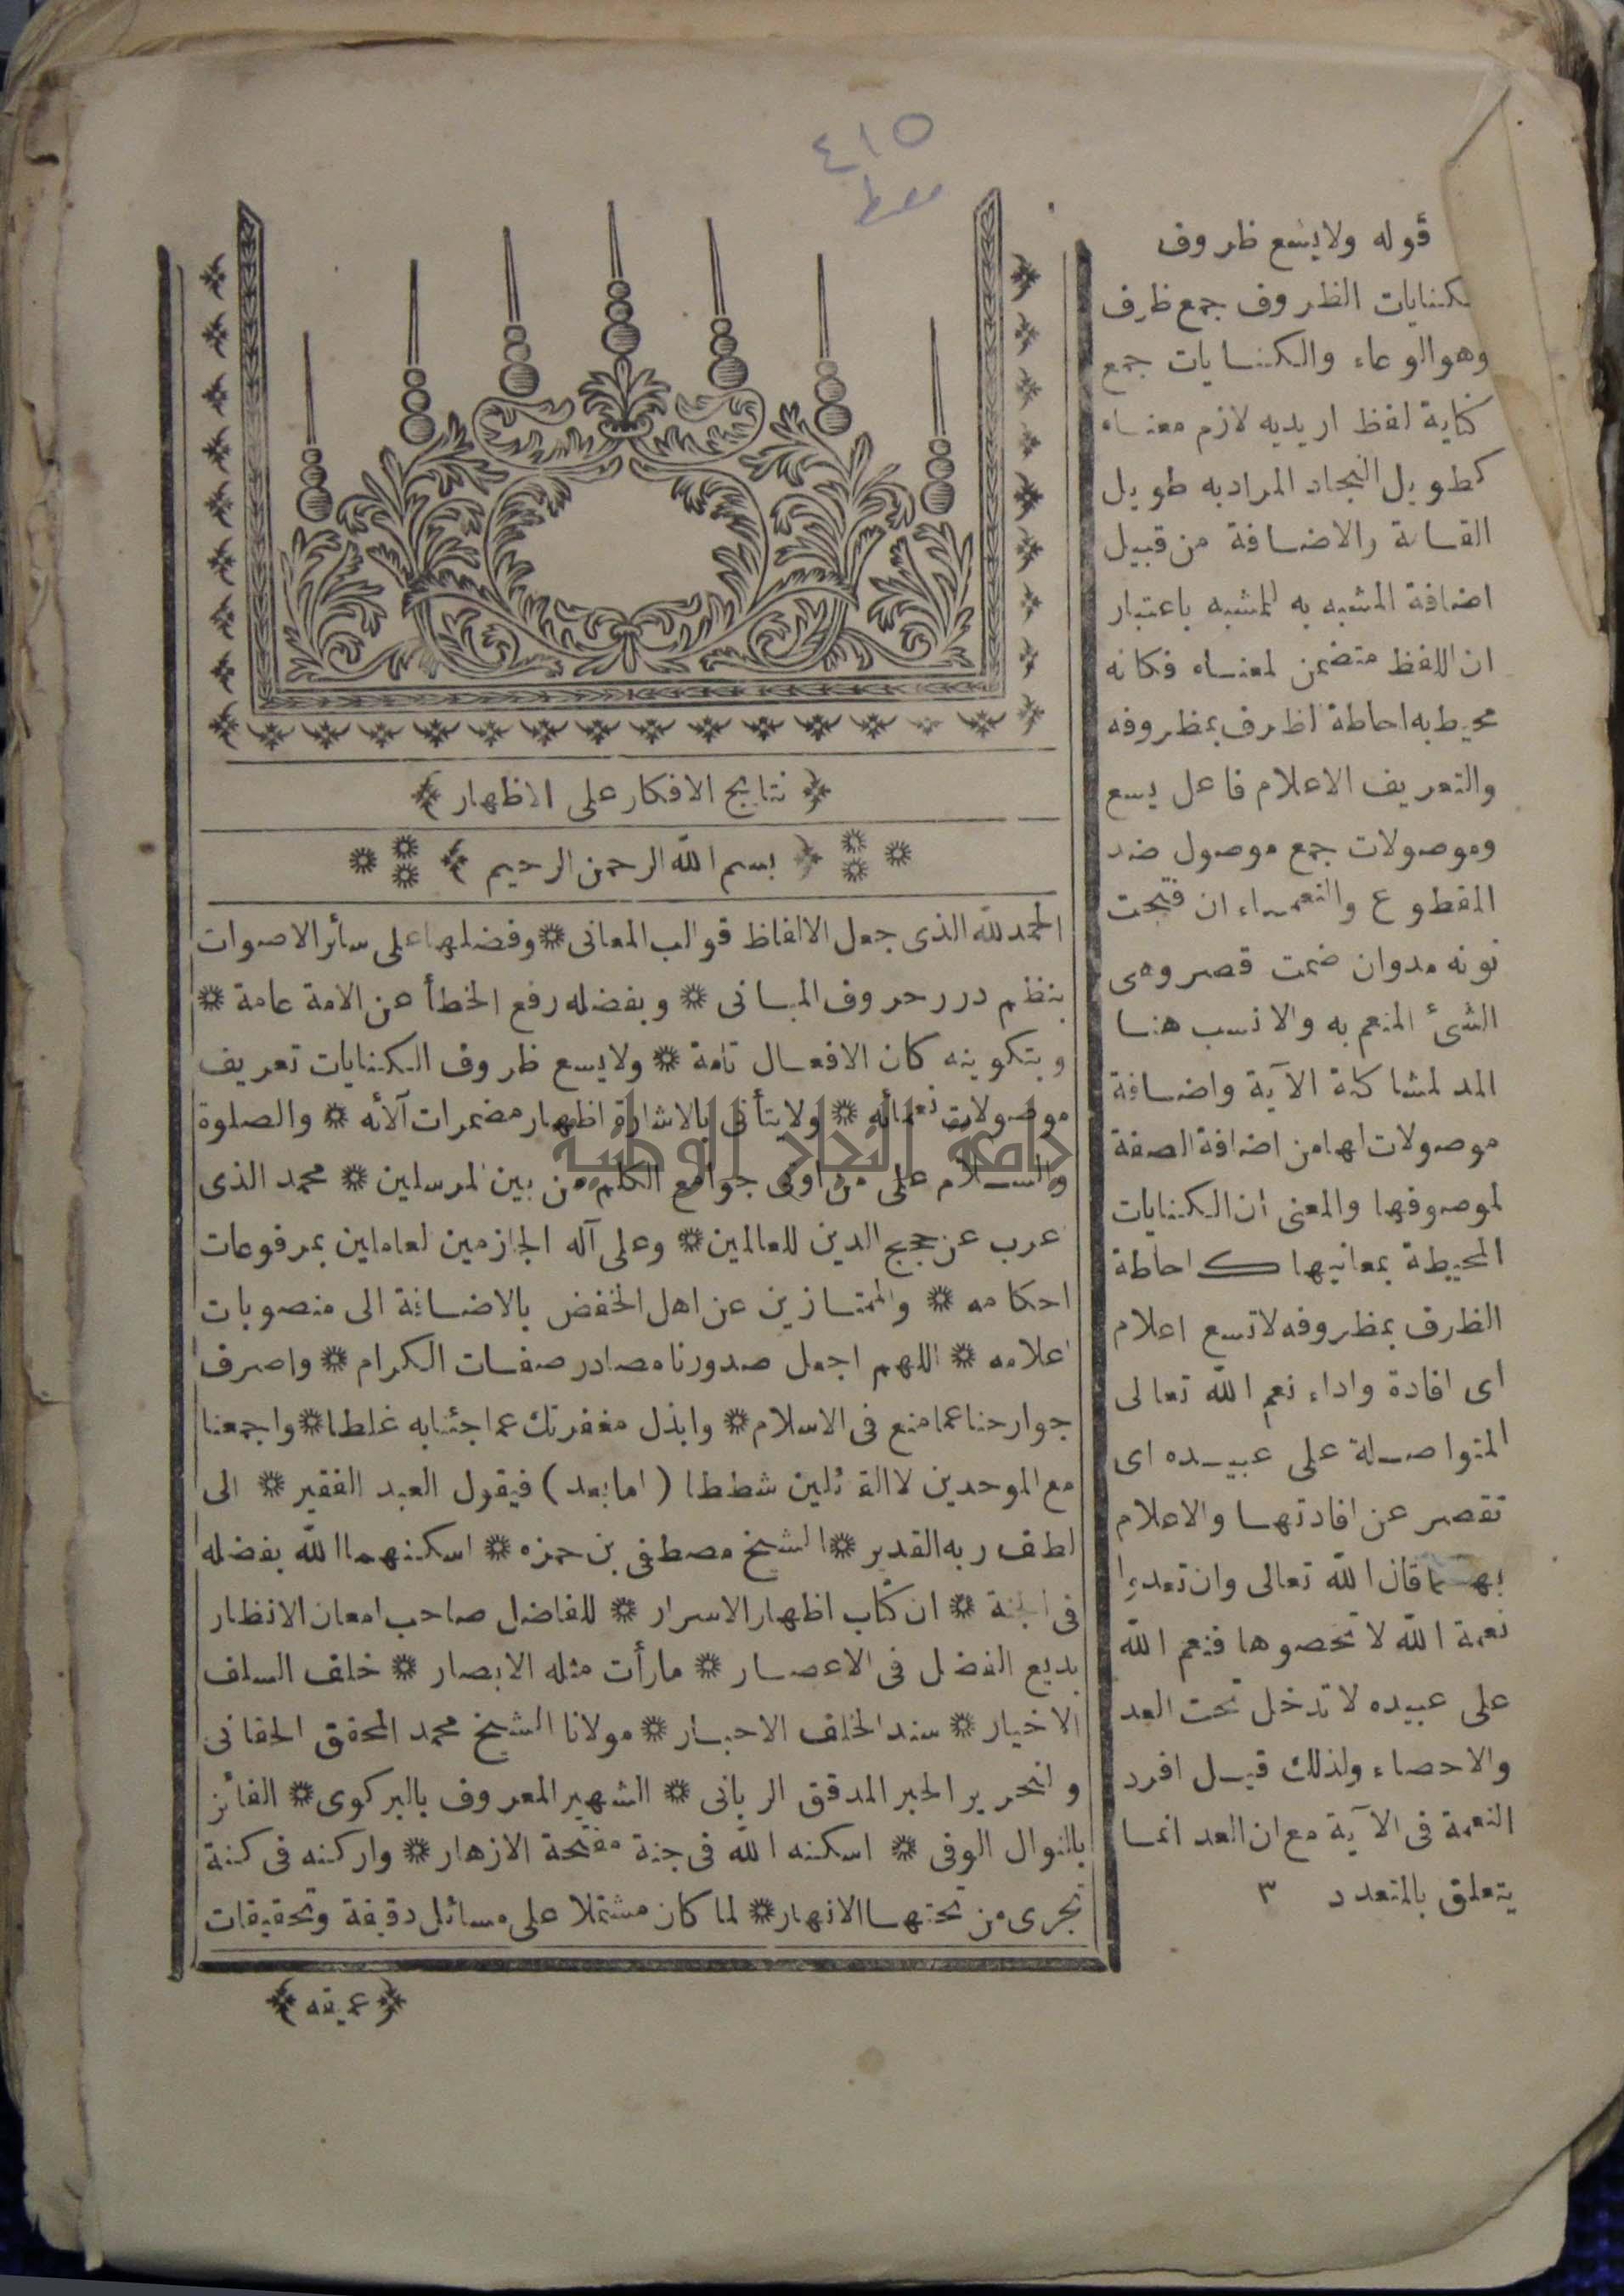 ٤١٥
نتايج الافكار على الاظهار
بسم الله الرحمن الرحيم
الحمدلله الذى جعل الالفاظ قوالب المعانى * وفضلها على سائر الاصوات
بنظم درر حروف المبانى * وبفضله رفع الخطأ عن الامة عامة *
وبتكوينه كان الافعال تامة * ولايسع ظروف الكنايات تعريف
موصولات نعمائه * ولايتأتى بالاشارة اظهار مضمرات آلائه * والصلوة
والسلام على من اوتى جوامع الكلم من بين المرسلين * محمد الذى
عرب عن حجج الدين للعالمين * وعلى آله الجازمين لعاملين بمرفوعات
احكامه * والممتازين عن اهل الخفض بالاضافة الى منصوبات
اعلامه * اللهم اجعل صدورنا مصادر صفات الكرام * واصرف
جوارحنا عما منع فى الاسلام * وابذل مغفرتك عما جئنابه غلطا * واجمعنا
مع الموحدين لا القائلين شططا (امابعد) فيقول العبد الفقير * الى
لطف ربه القدير * الشيخ مصطفى بن حمزه * اسكنهما الله بفضله
فى الجنة * ان كتاب اظهار الاسرار * للفاضل صاحب امعان الانظار
بديع الفضل فى الاعصار * مارأت مثله الابصار * خلف السلف
الاخيار * سند الخلف الاحبار * مولانا الشيخ محمد المحقق الحقانى
والنحرير الحبر المدقق الربانى * الشهير المعروف بالبركوى * الفائز
بالنوال الوفى * اسكنه الله فى جنة مفتحة الازهار * واركنه فى كنة
تجرى من تحتها الانهار * لما كان مشتملا على مسائل دقيقة وتحقيقات
عميقه
قوله ولايسع ظروف
الكنايات الظروف جمع ظرف
وهو الوعاء والكنايات جمع
كناية لفظ اريدبه لازم معناه
كطويل النجاد المرادبه طويل
القامة والاضافة من قبيل
اضافة المشبه به للمشبه باعتبار
ان اللفظ متضمن لمعناه فكانه
محيط به احاطة الظرف بمظروفه
والتعريف الاعلام فاعل يسع
وموصولات جمع موصول ضد
المقطوع والنعماء ان فتحت
نونه مدوان ضمت قصر وهى
الشئ المنعم به والانسب هنا
المد لمشاكلة الآية واضافة
موصولات لها من اضافة الصفة
لموصوفها والمعنى ان الكنايات
المحيطة بمعانيها كاحاطة
الظرف بمظروفه لاتسع اعلام
اى افادة واداء نعم الله تعالى
المتواصلة على عبيده اى
تقصر عن افادتها والاعلام
بها قال الله تعالى وان تعدوا
نعمة الله لا تحصوها فنعم الله
على عبيده لا تدخل تحت العد
والاحصاء ولذلك قيل افرد
النعمة فى الآية مع ان العد انما
يتعلق بالمتعدد ٣
جامعة النجاح الوطنية